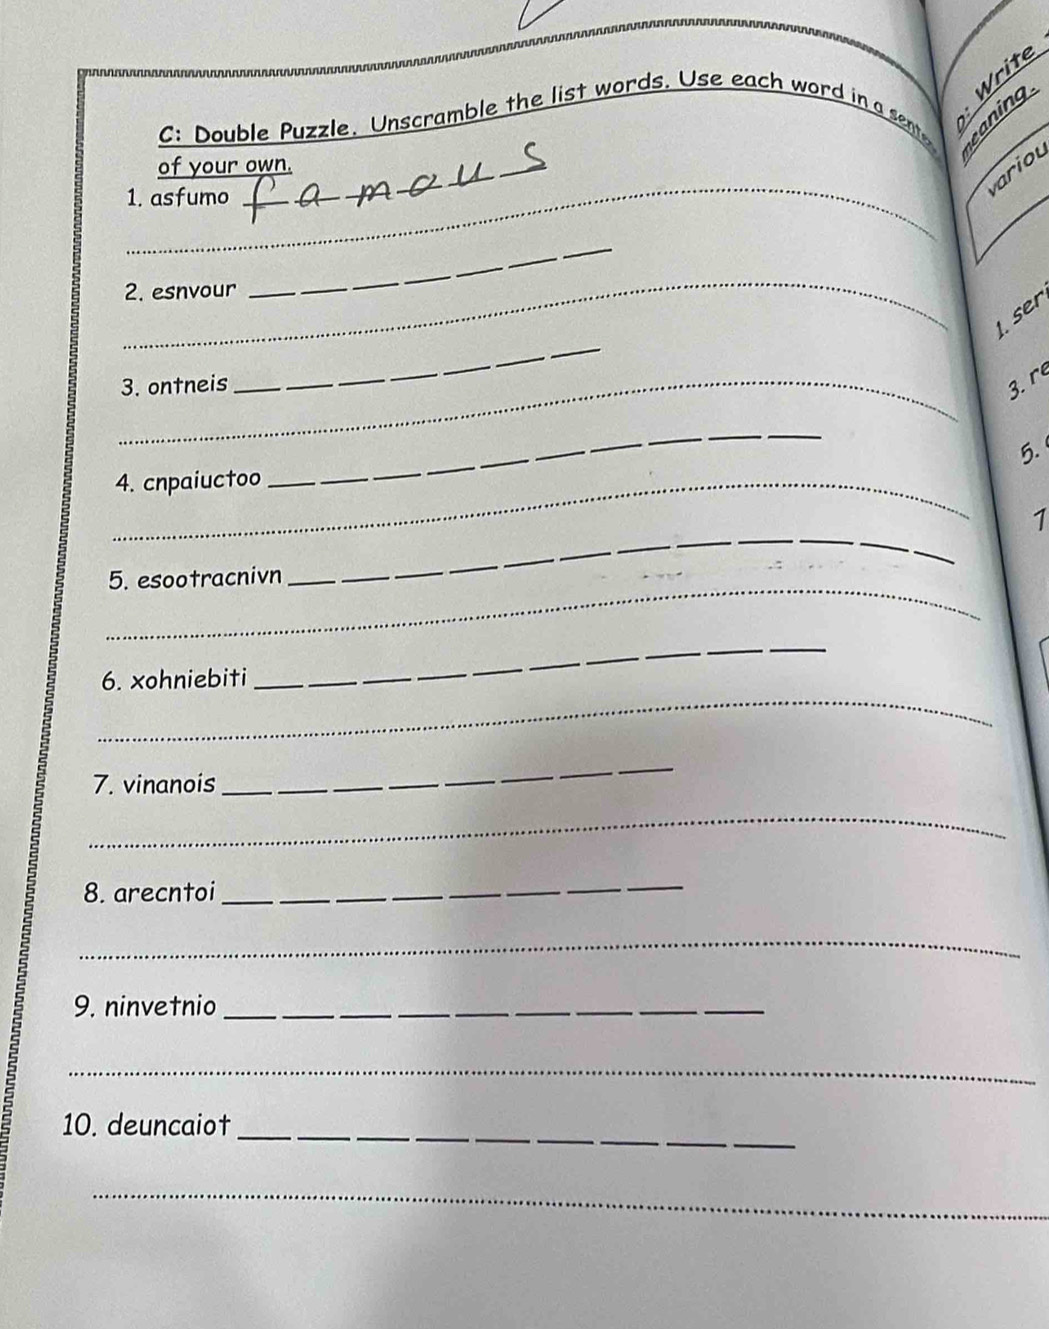 C: Double Puzzle. Unscramble the list words. Use each word in a
of your own.
1. asfumo famous
2. esnvour
3. ontneis
4. cnpaiuctoo
5. esootracnivn
6. xohniebiti
7. vinanois
8. arecntoi
9. ninvetnio
10. deuncaiot
D: Write
meaning.
variou
1. seri
3. re
5.
7